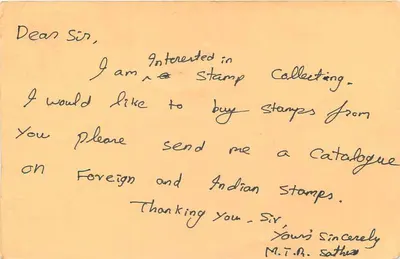 Dear Sir,
I am Interested in Stamp Collecting.
I would like to buy Stamps from
You please send me a Catalogue
on Foreign and Indian Stamps.
Thanking You, Sir,
Yours Sincerely
M.T.R.